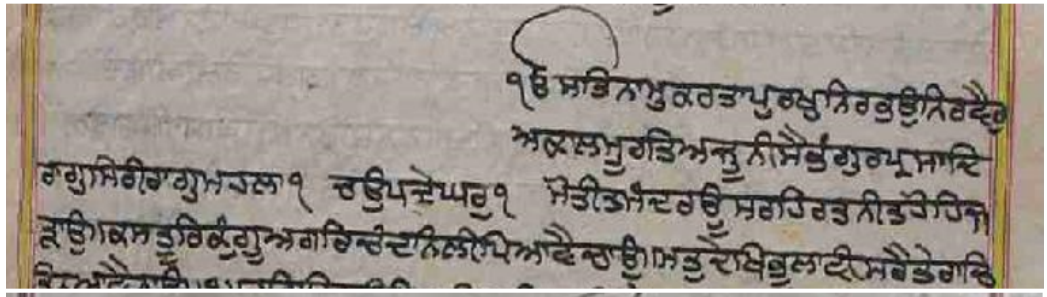 ੧ੳ ਸਤਿਨਾਮੁਕਰਤਾਪੁਰਖੁਨਿਰਭਉਨਿਰਵੈਰੁ
ਅਕਾਲਮੂਰਤਿਅਜੂਨੀਸੈਭੰਗੁਰਪ੍ਰਸਾਦਿ
ਰਾਗੁਸਿਰੀਰਾਗੁਮਹਲਾ੧ ਚਉਪਦੇਘਰੁ੧ ਮੋਤੀਤਮੰਦਰਊਸਰਹਿਰਤਨੀਤਹੋਹਿਜ
ੜਾਉ॥ਕਸਤੂਰਿਕੁੰਗੂਅਗਰਿਚੰਦਨਿਲੀਪਿਆਵੈਚਾਉ॥ਮਤੁਦੇਖਿਭੂਲਾਵੀਸਰੈਤੇਰਾਚਿ